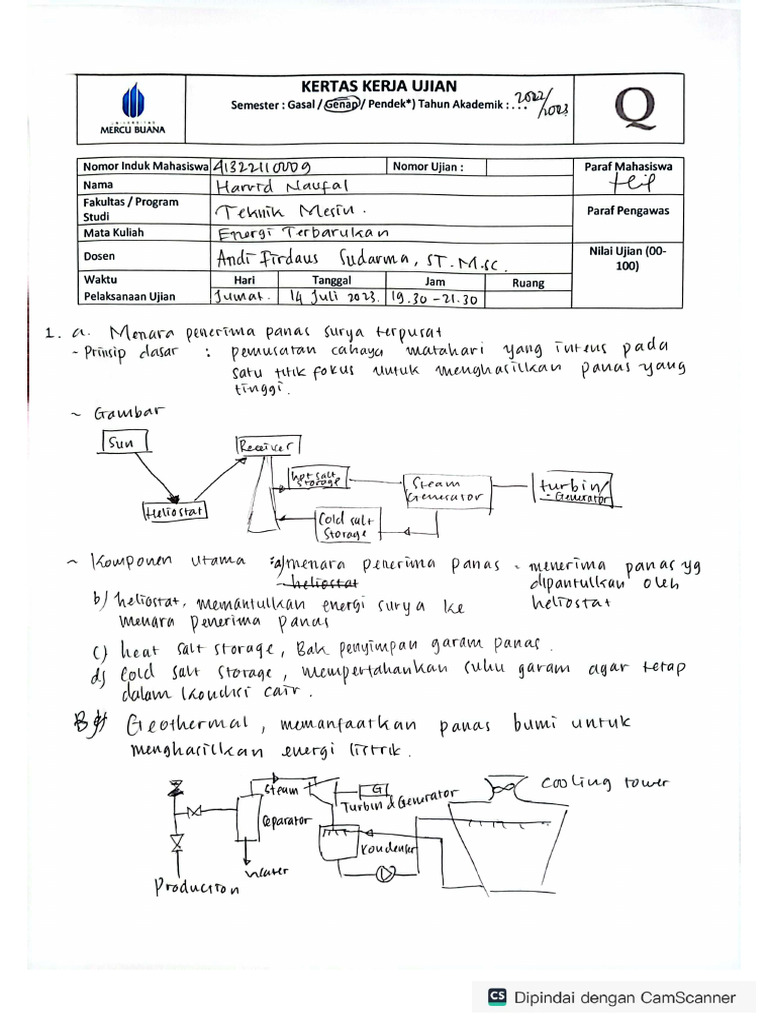 KERTAS KERJA UJIAN
Semester : Gasal / Genap / Pendek*) Tahun Akademik : ... 2022/2023
UNIVERSITAS
MERCU BUANA
Q
Nomor Induk Mahasiswa 41322110009 Nomor Ujian : Paraf Mahasiswa
Nama Harvid Naufal
Fakultas / Program Studi Teknik Mesin. Paraf Pengawas
Mata Kuliah Energi Terbarukan
Dosen Andi Firdaus Sudarma, ST. M.sc. Nilai Ujian (00-100)
Waktu Hari Tanggal Jam Ruang
Pelaksanaan Ujian Jumat. 14 Juli 2023. 19.30-21.30
1. a. Menara penerima panas surya terpusat
- Prinsip dasar : pemusatan cahaya matahari yang intens pada
satu titik fokus untuk menghasilkan panas yang
tinggi.
~ Gambar
Sun
Receiver
Heliostat
hot salt storage
Steam Generator
turbin/ - Generator
Cold salt Storage
~ Komponen utama : a) menara penerima panas - menerima panas yg
heliostat dipantulkan oleh
b) heliostat, memantulkan energi surya ke heliostat
menara penerima panas
c) heat salt storage, Bak penyimpan garam panas.
d) Cold salt storage, mempertahankan suhu garam agar tetap
dalam kondisi cair.
B Geothermal, memanfaatkan panas bumi untuk
menghasilkan energi listrik.
Steam
G
Turbin & Generator
cooling tower
Ceparator
Kondenser
Water
Production
CS Dipindai dengan CamScanner